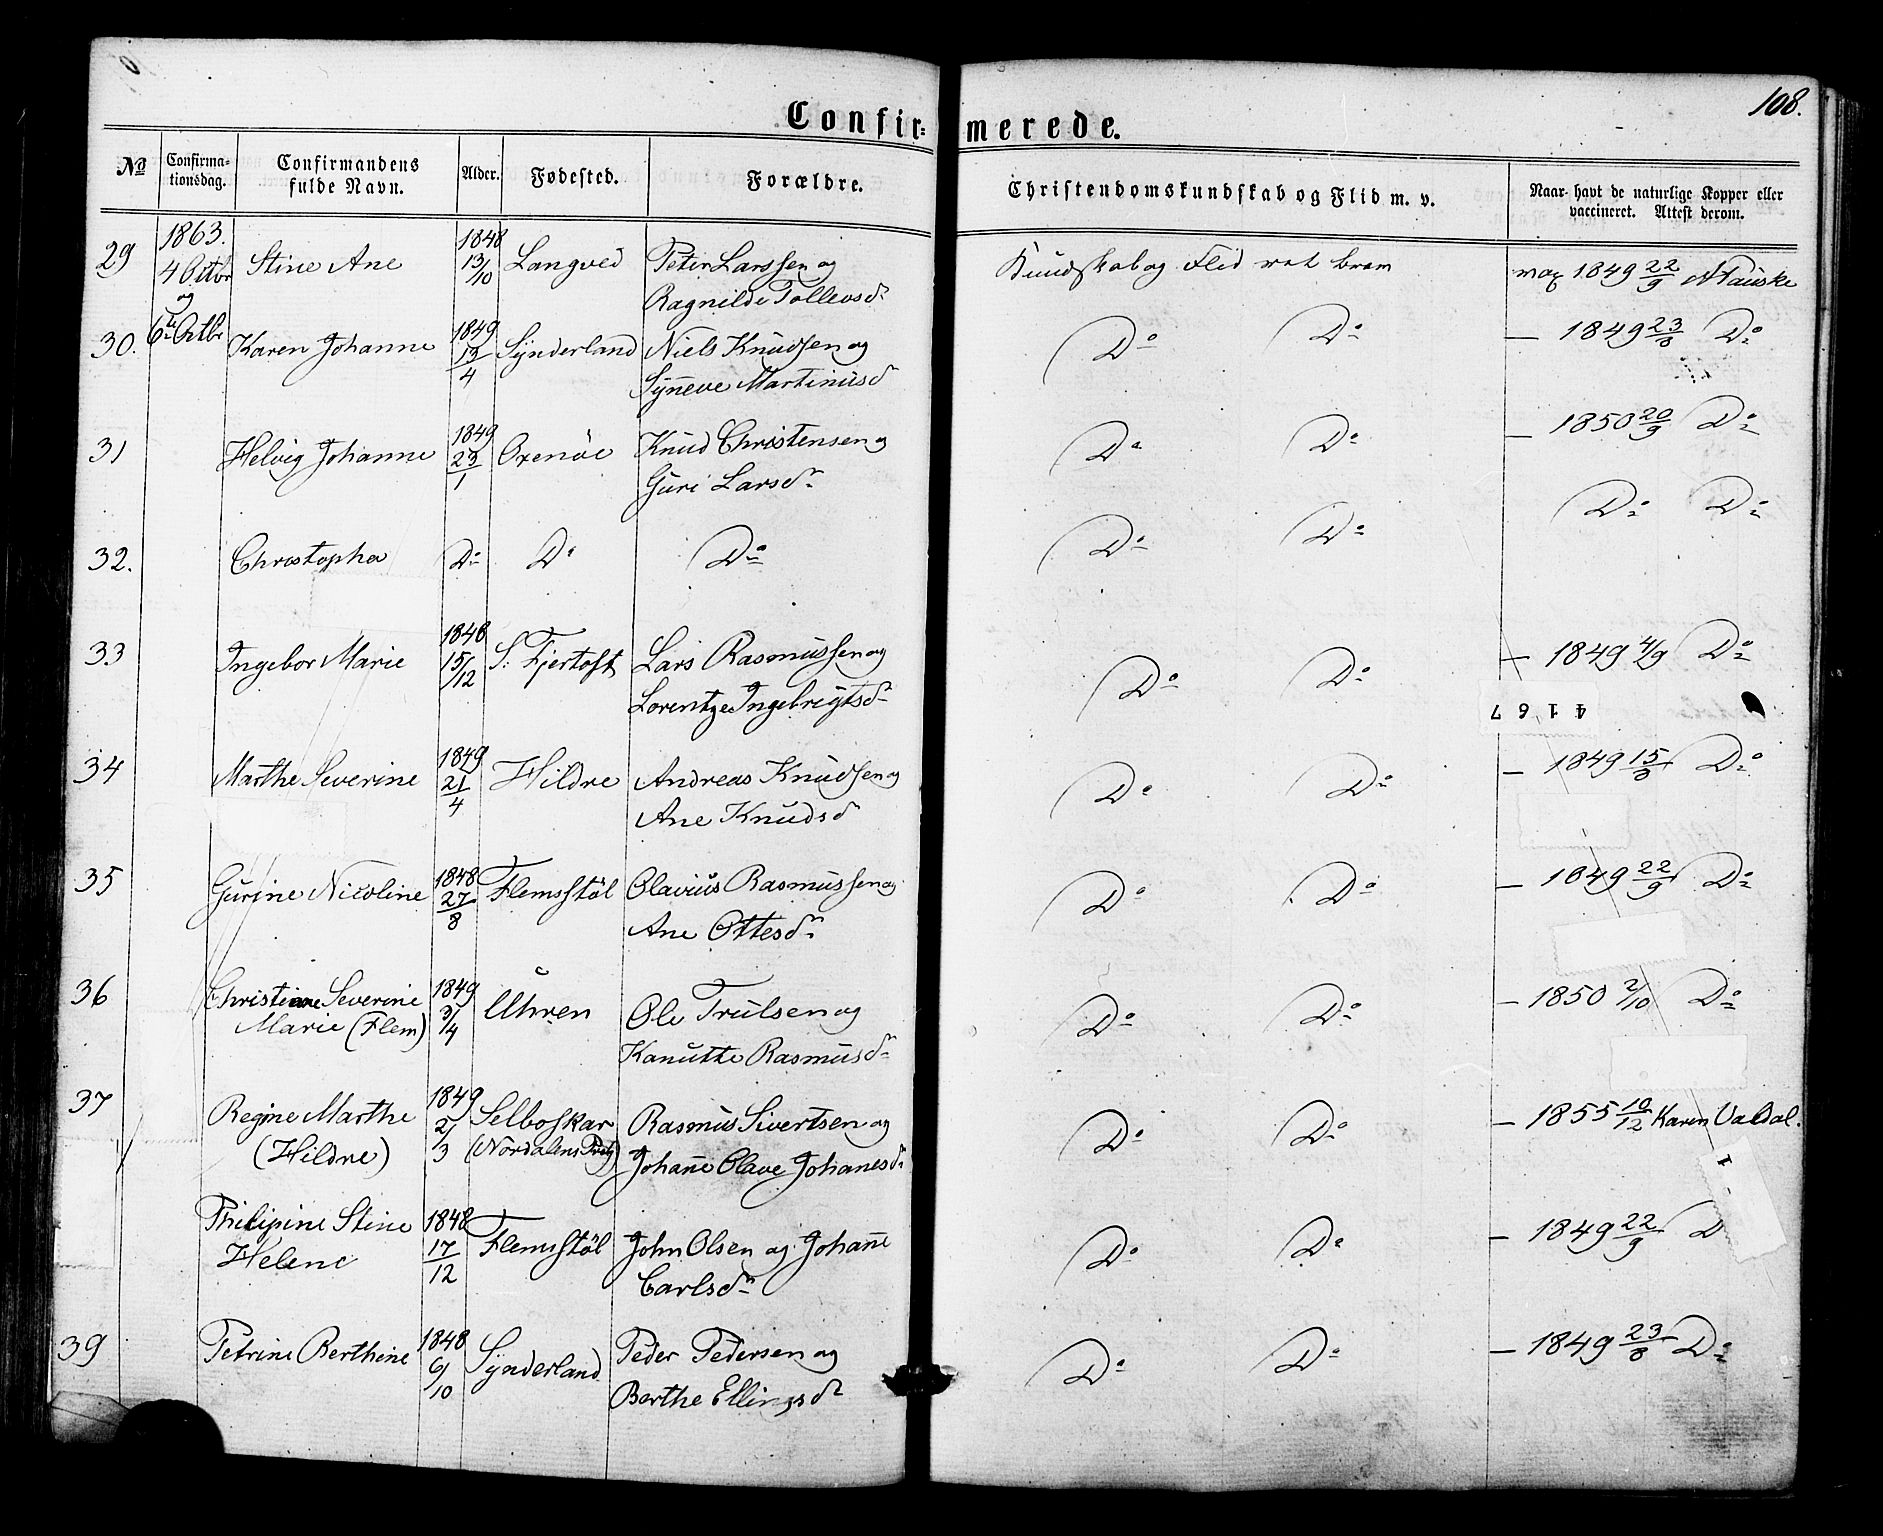 108.
Confir= merede.
No Confirma- tionsdag. Confirmandens fulde Navn. Alder. Fødested. Forældre. Christendomskundskab og Flid m. v. Naar havt de naturlige Kopper eller vaccineret. Attest derom.
29 1863. 4 Octbr og 6te Octbr Stine Ane 1848 13/10 Langved Peter Larssen og Kundskab og Flid vac 1849 22/9
Ragnilde Tollevsdr
30. Karen Johanne 1849 13/4 Synderland Niels Knudsen og Do Do — 1849 23/8 Do
Synneve Martinusdr
31 Helvig Johanne 1849 23/1 Oxenöe Knud Christensen og Do Do — 1850 20/9 Do
Guri Larsdr
32. Christopha Do Do Do Do Do Do Do
33 Ingebor Marie 1848 15/12 S: Fjertoft Lars Rasmussen og Do Do — 1849 4/9 Do
Lorentze Ingebrigtsdr
4167
34 Marthe Severine 1849 21/4 Hildre Andreas Knudsen og Do Do — 1849 15/8 Do
Ane Knudsdr
35 Gurine Nicoline 1848 27/8 Flemsstöl Olavius Rasmussen og Do Do — 1849 22/9 Do
Ane Ottesdr
36 Christiane Severine 1849 3/4 Uhren Ole Trulsen og Do Do — 1850 2/10 Do
Marie (Flem) Kanutte Rasmusdr
37 Regine Marthe 1849 2/3 Selboskar Rasmus Sivertsen og Do Do — 1855 10/12 Karen Valdal.
(Hildre) (Nordalens Prgj) Johanne Olave Johanesdr
1
Philipine Stine 1848 17/12 Flemsstöl John Olsen og Johanne Do Do — 1849 22/9 D
Helene Carlsdr
39 Petrine Berthine 1848 6/10 Synderland Peder Pedersen og Do Do — 1849 23/8 Do
Berthe Ellingsdr